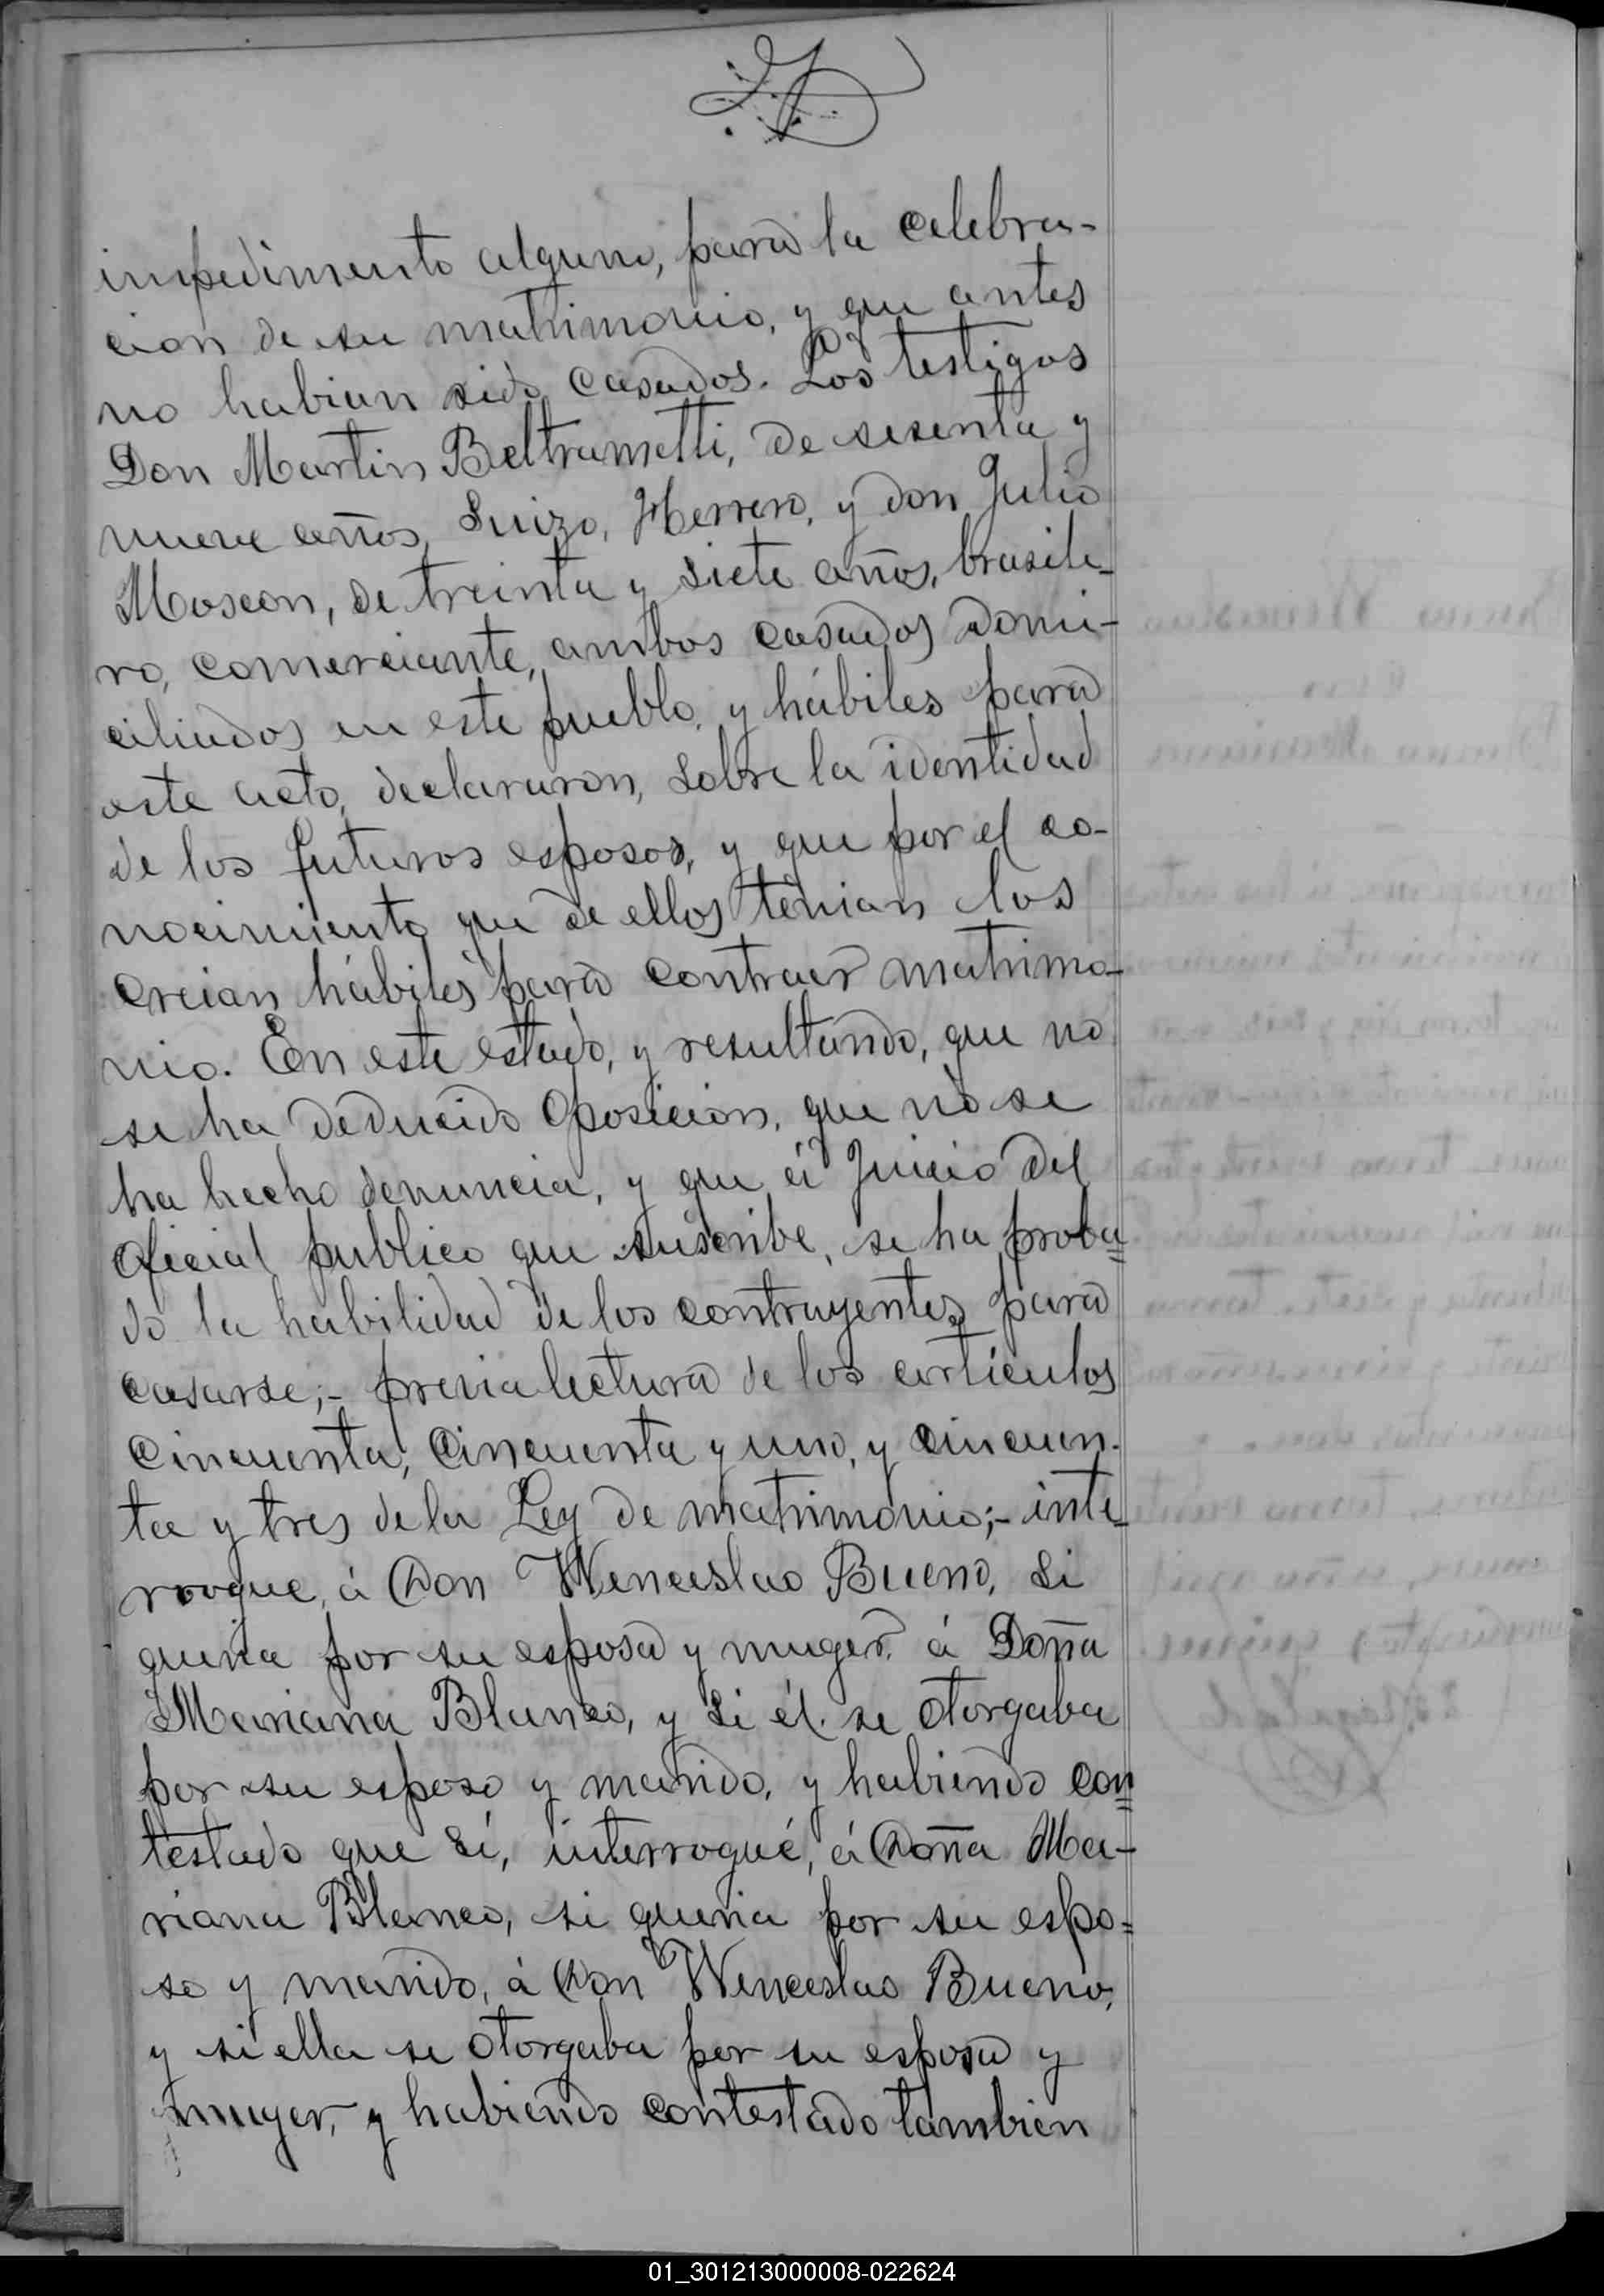 impedimento alguno, para la celebra-
cion de su matrimonio, y que antes
no habian sido casados. Los testigos
Don Martin Beltrametti, de sesenta y
nueve años, Suizo, Herrero, y don Julio
Moscon, de treinta y siete años, brasile-
ro, comerciante, ambos casados domi-
ciliados en este pueblo, y hábiles para
este acto, declararon, sobre la identidad
de los futuros esposos, y que por el co-
nocimiento que de ellos tenian los
creian hábiles para contraer matrimo-
nio. En este estado, y resultando, que no
se ha deducido oposicion, que no se
ha hecho denuncia, y que á juicio del
oficial publico que suscribe, se ha proba=
do la habilidad de los contrayentes para
casarse;- previa lectura de los articulos
cincuenta, cincuenta y uno, y cincuen-
ta y tres de la Ley de matrimonio;- inte-
rrogue, á Don Wenceslao Bueno, si
queria por su esposa y muger, á Doña
Mariana Blanco, y si él se otorgaba
por su esposo y marido, y habiendo con=
testado que sí, interrogué, á Doña Ma-
riana Blanco, si queria por su espo=
so y marido, á Don Wenceslao Bueno,
y si ella se otorgaba por su esposa y
muger, y habiendo contestado tambien
01_301213000008-022624